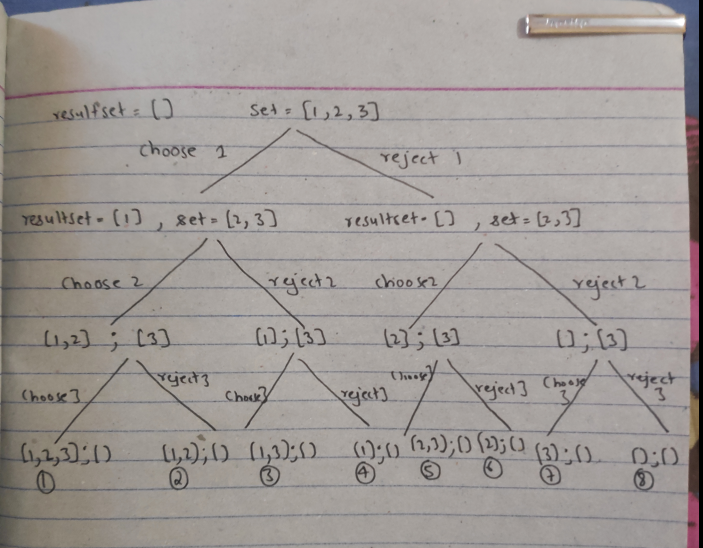 resultset = [] set = [1,2,3]
choose 1 reject 1
resultset = [1] , set = [2,3] resultset = [] , set = [2,3]
choose 2 reject 2 choose 2 reject 2
[1,2] ; [3] [1] ; [3] [2] ; [3] [] ; [3]
choose 3 reject 3 choose 3 reject 3 choose 3 reject 3 choose 3 reject 3
[1,2,3] ; [] [1,2) ; () (1,3) ; () (1) ; () (2,3) ; () (2) ; () (3) ; () () ; ()
① ② ③ ④ ⑤ ⑥ ⑦ ⑧